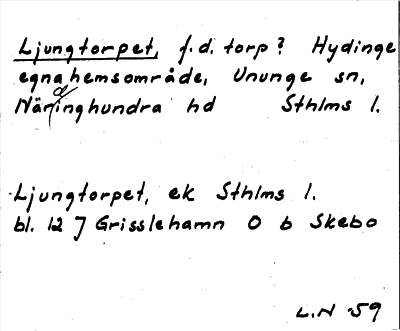 Ljungtorpet, f.d. torp? Hydinge
egnahemsområde, Ununge sn,
Närdinghundra hd Sthlms l.
Ljungtorpet, ek Sthlms l.
bl. 12 J Grisslehamn O b Skebo
L.N 59